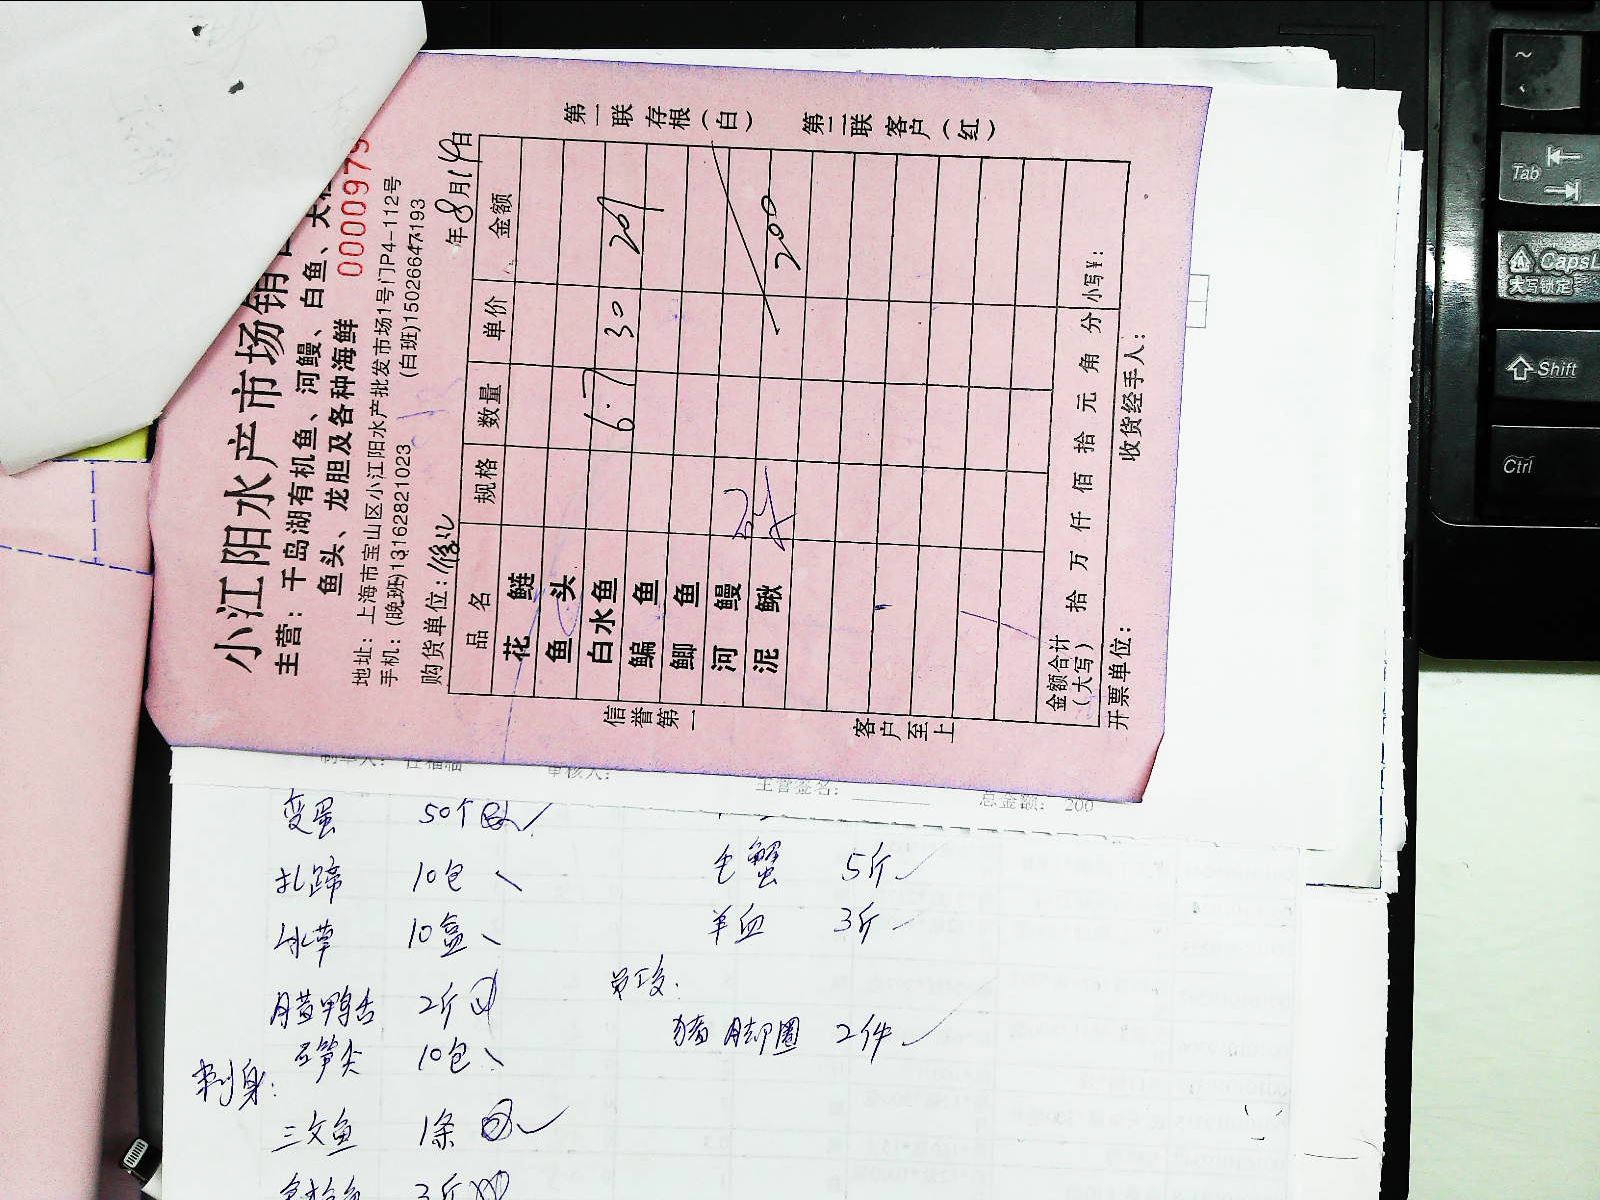 小江阳水产市场销
主营：千岛湖有机鱼、河鳗、白鱼、
鱼头、龙胆及各种海鲜 0000979
地址：上海市宝山区小江阳水产批发市场1号门P4-112号
手机：(晚班)13162821023 (白班)15026647193
购货单位： 年8月19日
品名 规格 数量 单价 金额
花鲢
鱼头
白水鱼 6.7 30 201
鳊鱼
鲫鱼
河鳗
泥鳅 200
金额合计（大写） 拾 万 仟 佰 拾 元 角 分 小写¥：
开票单位： 收货经手人：
第一联存根（白） 第二联客户（红）
信誉第一 客户至上
制单人： 审核人： 主管签名： 总金额： 200
变蛋 50个
扎蹄 10包
冰草 10盒
腊鸭舌 2斤
笋尖 10包
刺身：
三文鱼 1条
3斤
毛蟹 5斤
羊血 3斤
员工餐：
猪脚圈 2件
~
Tab
CapsL
大写锁定
Shift
Ctrl